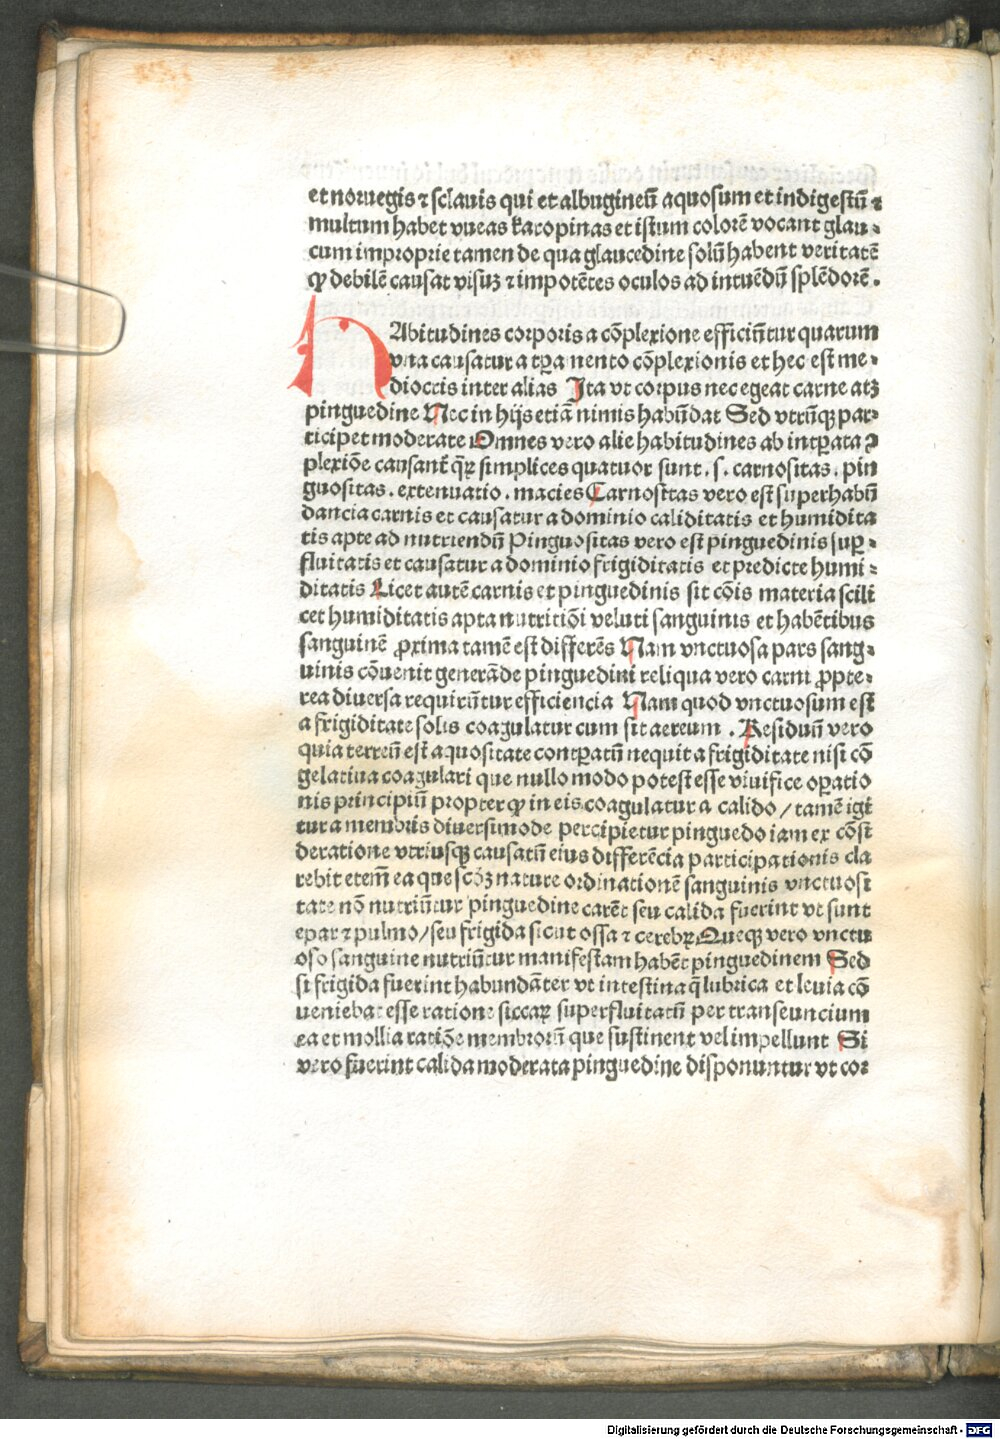 et noruegis ⁊ sclauis qui et albugineū aquosum et indigestū ⁊
multum habet vueas karopinas et istum colorē vocant glau⸗
cum improprie tamen de qua glaucedine solū habent veritatē
ꝙ debilē causat visuꝫ ⁊ impotētes oculos ad intuēdū splēdorē.
HAbitudines corporis a cōplexione efficiūtur quarum
vna causatur a tꝑanento cōplexionis et hec est me⸗
diocris inter alias Ita vt corpus nec egeat carne atꝫ
pinguedine Nec in hijs etiā nimis habūdat Sed vtrūqꝫ par⸗
ticipet moderate Omnes vero alie habitudines ab intꝑata ↄ̄
plexiōe causant̄ qꝝ simplices quatuor sunt. s. carnositas. pin
guositas. extenuatio. macies Carnositas vero est superhabū
dancia carnis et causatur a dominio caliditatis et humidita
tis apte ad nutriendū Pinguositas vero est pinguedinis suꝑ⸗
fluitatis et causatur a dominio frigiditatis et predicte humi⸗
ditatis Licet autē carnis et pinguedinis sit cōis materia scili
cet humiditatis apta nutritiōi veluti sanguinis et habētibus
sanguinē ꝓxima tamē est differēs Nam vnctuosa pars sang⸗
uinis cōuenit generāde pinguedini reliqua vero carni ꝓpte⸗
rea diuersa requirūtur efficiencia Nam quod vnctuosum est
a frigiditate solis coagulatur cum sit aereum. Residuū vero
quia terreū est aquositate contꝑatū nequit a frigiditate nisi cō
gelatiua coagulari que nullo modo potest esse viuifice oꝑatio
nis principiū propter ꝙ in eis coagulatur a calido / tamē igi
tur a membris diuersimode percipietur pinguedo iam ex cōsi
deratione vtriusqꝫ causatū eius differēcia participationis cla
rebit etem̄ ea que scōꝫ nature ordinationē sanguinis vnctuosi
tate nō nutriūtur pinguedine carēt seu calida fuerint vt sunt
epar ⁊ pulmo/seu frigida sicut ossa ⁊ cerebꝝ Queqꝫ vero vnctu
oso sanguine nutriūtur manifestam habēt pinguedinem Sed
si frigida fuerint habundāter vt intestina q̄ lubrica et leuia cō
ueniebat esse ratione siccaꝝ superfluitatū per transeuncium
ea et mollia ratiōe membrorū que sustinent vel impellunt Si
vero fuerint calida moderata pinguedine disponuntur vt cor
Digitalisierung gefördert durch die Deutsche Forschungsgemeinschaft - DFG